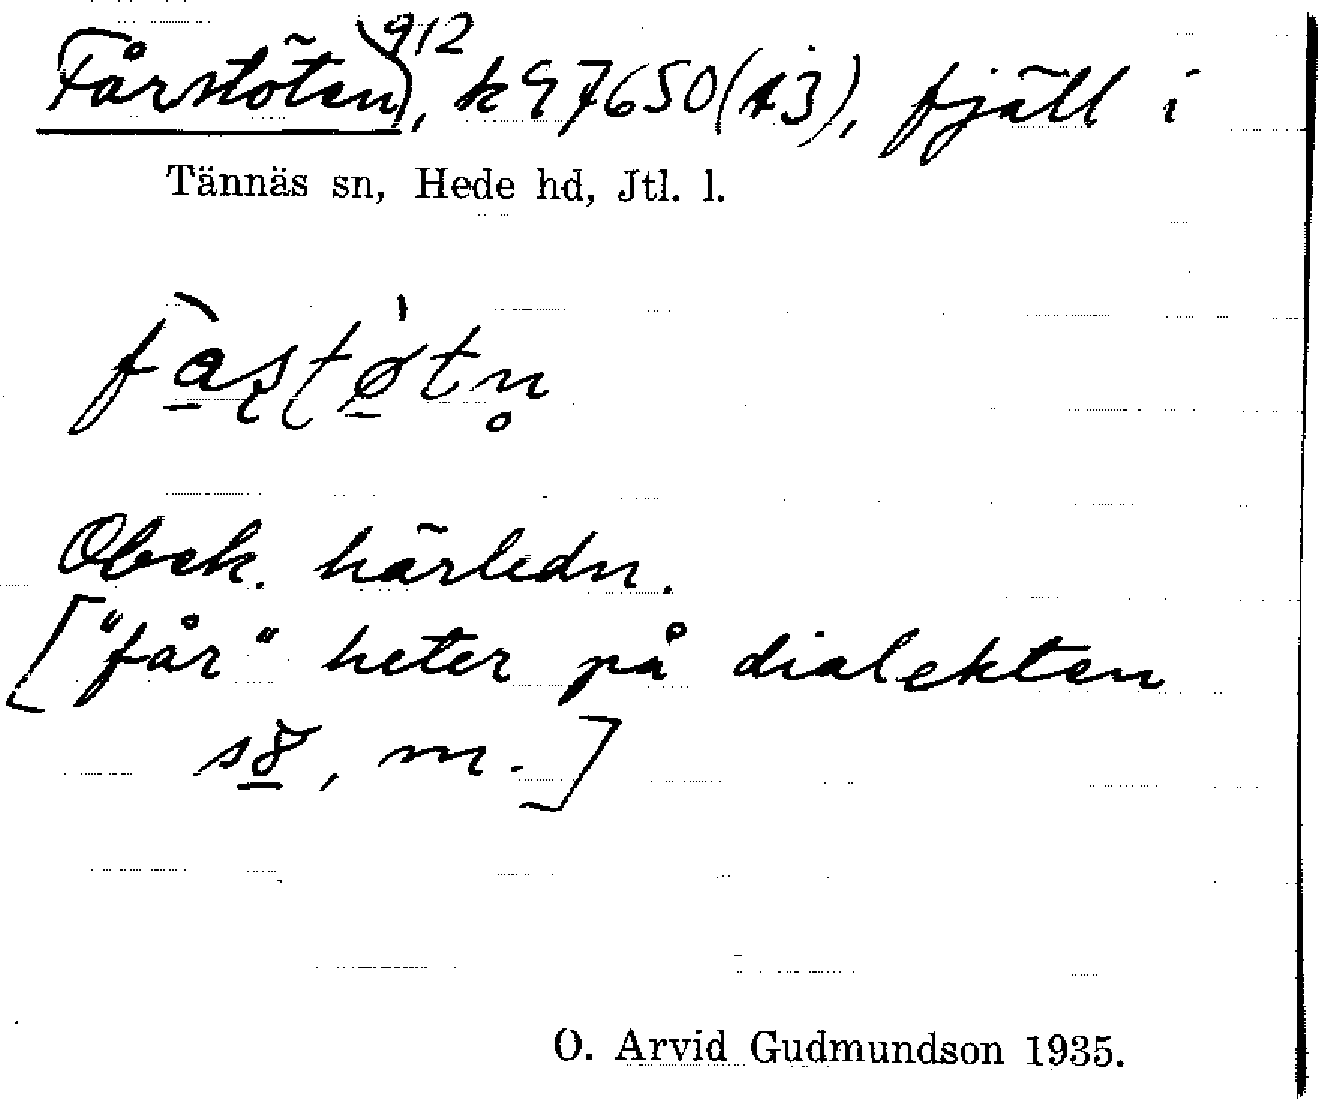 Fårstöten) 912, k 97650 (A3), fjäll i
Tännäs sn, Hede hd, Jtl. l.
fàʂʈø̀tn̥
Obek. härledn.
["får" heter på dialekten
m.]
O. Arvid Gudmundson 1935.